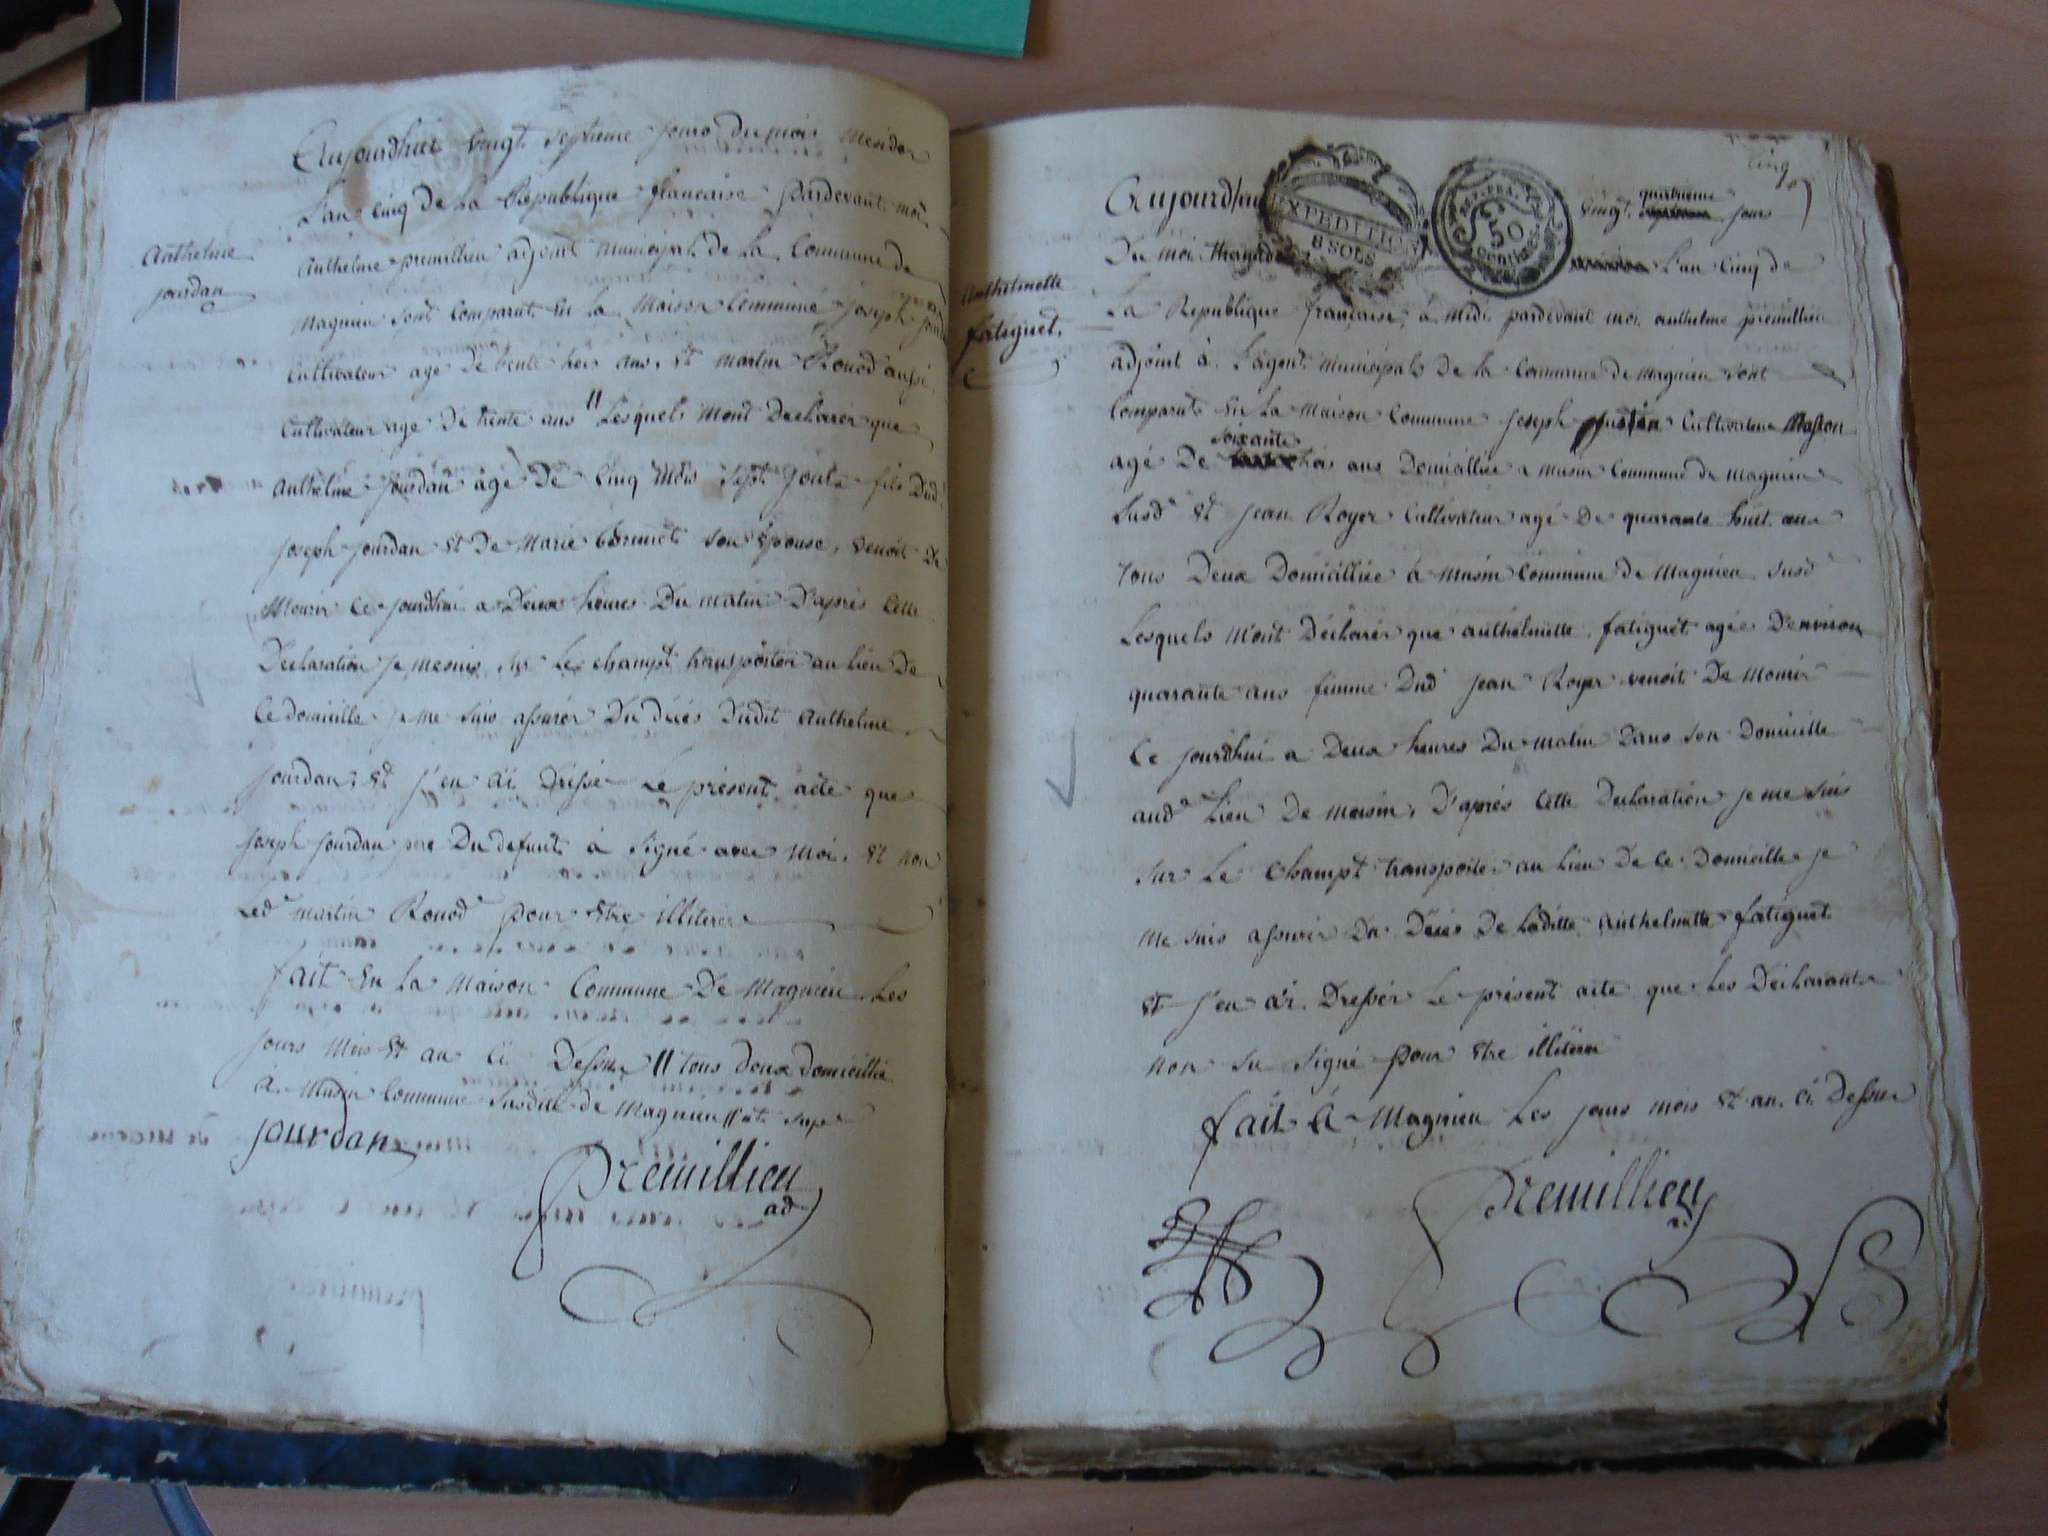 Aujourdhui vingt septieme jours du mois Mesidor
L'an Cinq de la Republique francaise pardevant moi
Anthelme
jourdan
anthelme premillieu adjoint municipal de la Commune de
Magnieu sont Comparut en la Maison Commune joseph jourdan
Cultivateur age de trente trois ans, et martin Rouod aussi
Cultivateur age de trente ans // Lesquels mont declarer que
anthelme jourdan age de Cinq mois sept jours fils dud
joseph jourdan et de Marie son epouse, venoit de
Mourir Ce jourdhui a Deux heures Du matin D'apres Cette
Declaration je me suis sur Le champt transporter au lieu De
Ce domicille je me suis assurer Du déces dudit anthelme
jourdan, et j'en ai Dressé Le présent acte que
joseph jourdan pere Du defunt à Signé avec Moi, et non
Led martin Rouod pour etre illiterer
fait en la Maison Commune De Magnieu Les
jours Mois et an Ci Dessu // tous deux domicillie
a Musin Commune Susdite de Magnieu
jourdan
Premillieu
ad
cinq
Aujourdhui vingt quatrieme jours
EXPEDITION
8 SOLS
REP. FRA.
50
Centimes
Du moi L'an Cinq de
Anthelmette
fatiguet.
La Republique française, à midi pardevant moi anthelme premillieu
adjoint à L'agent municipals De la Commune de Magnieu sont
Comparut en La Maison Commune joseph Cultivateur
agé De soixante trois ans Domicilliée a musin Commune de Magnieu
Susd et jean Royer Cultivateur agé De quarante huit ans
tous Deux Domicilliée à Musin Commune De Magnieu Susd
Lesquels M'ont Déclarer que anthelmette fatiguet agée D'environ
quarante ans femme Dud jean Royer venoit De Mourir
Ce jourdhui a Deux heures Du matin Dans son Domicille
aud Lieu De Musin, D'après Cette Declaration je me suis
sur Le Champt transporter au lieu De Ce Domicille je
me suis assurer Du Déces De Laditte Anthelmette fatiguet
et j'en ai Dresser Le présent acte que Les Déclarants
non su Signé pour etre illiterer
fait à Magnieu Les jours mois et an Ci Dessu
Premillieu